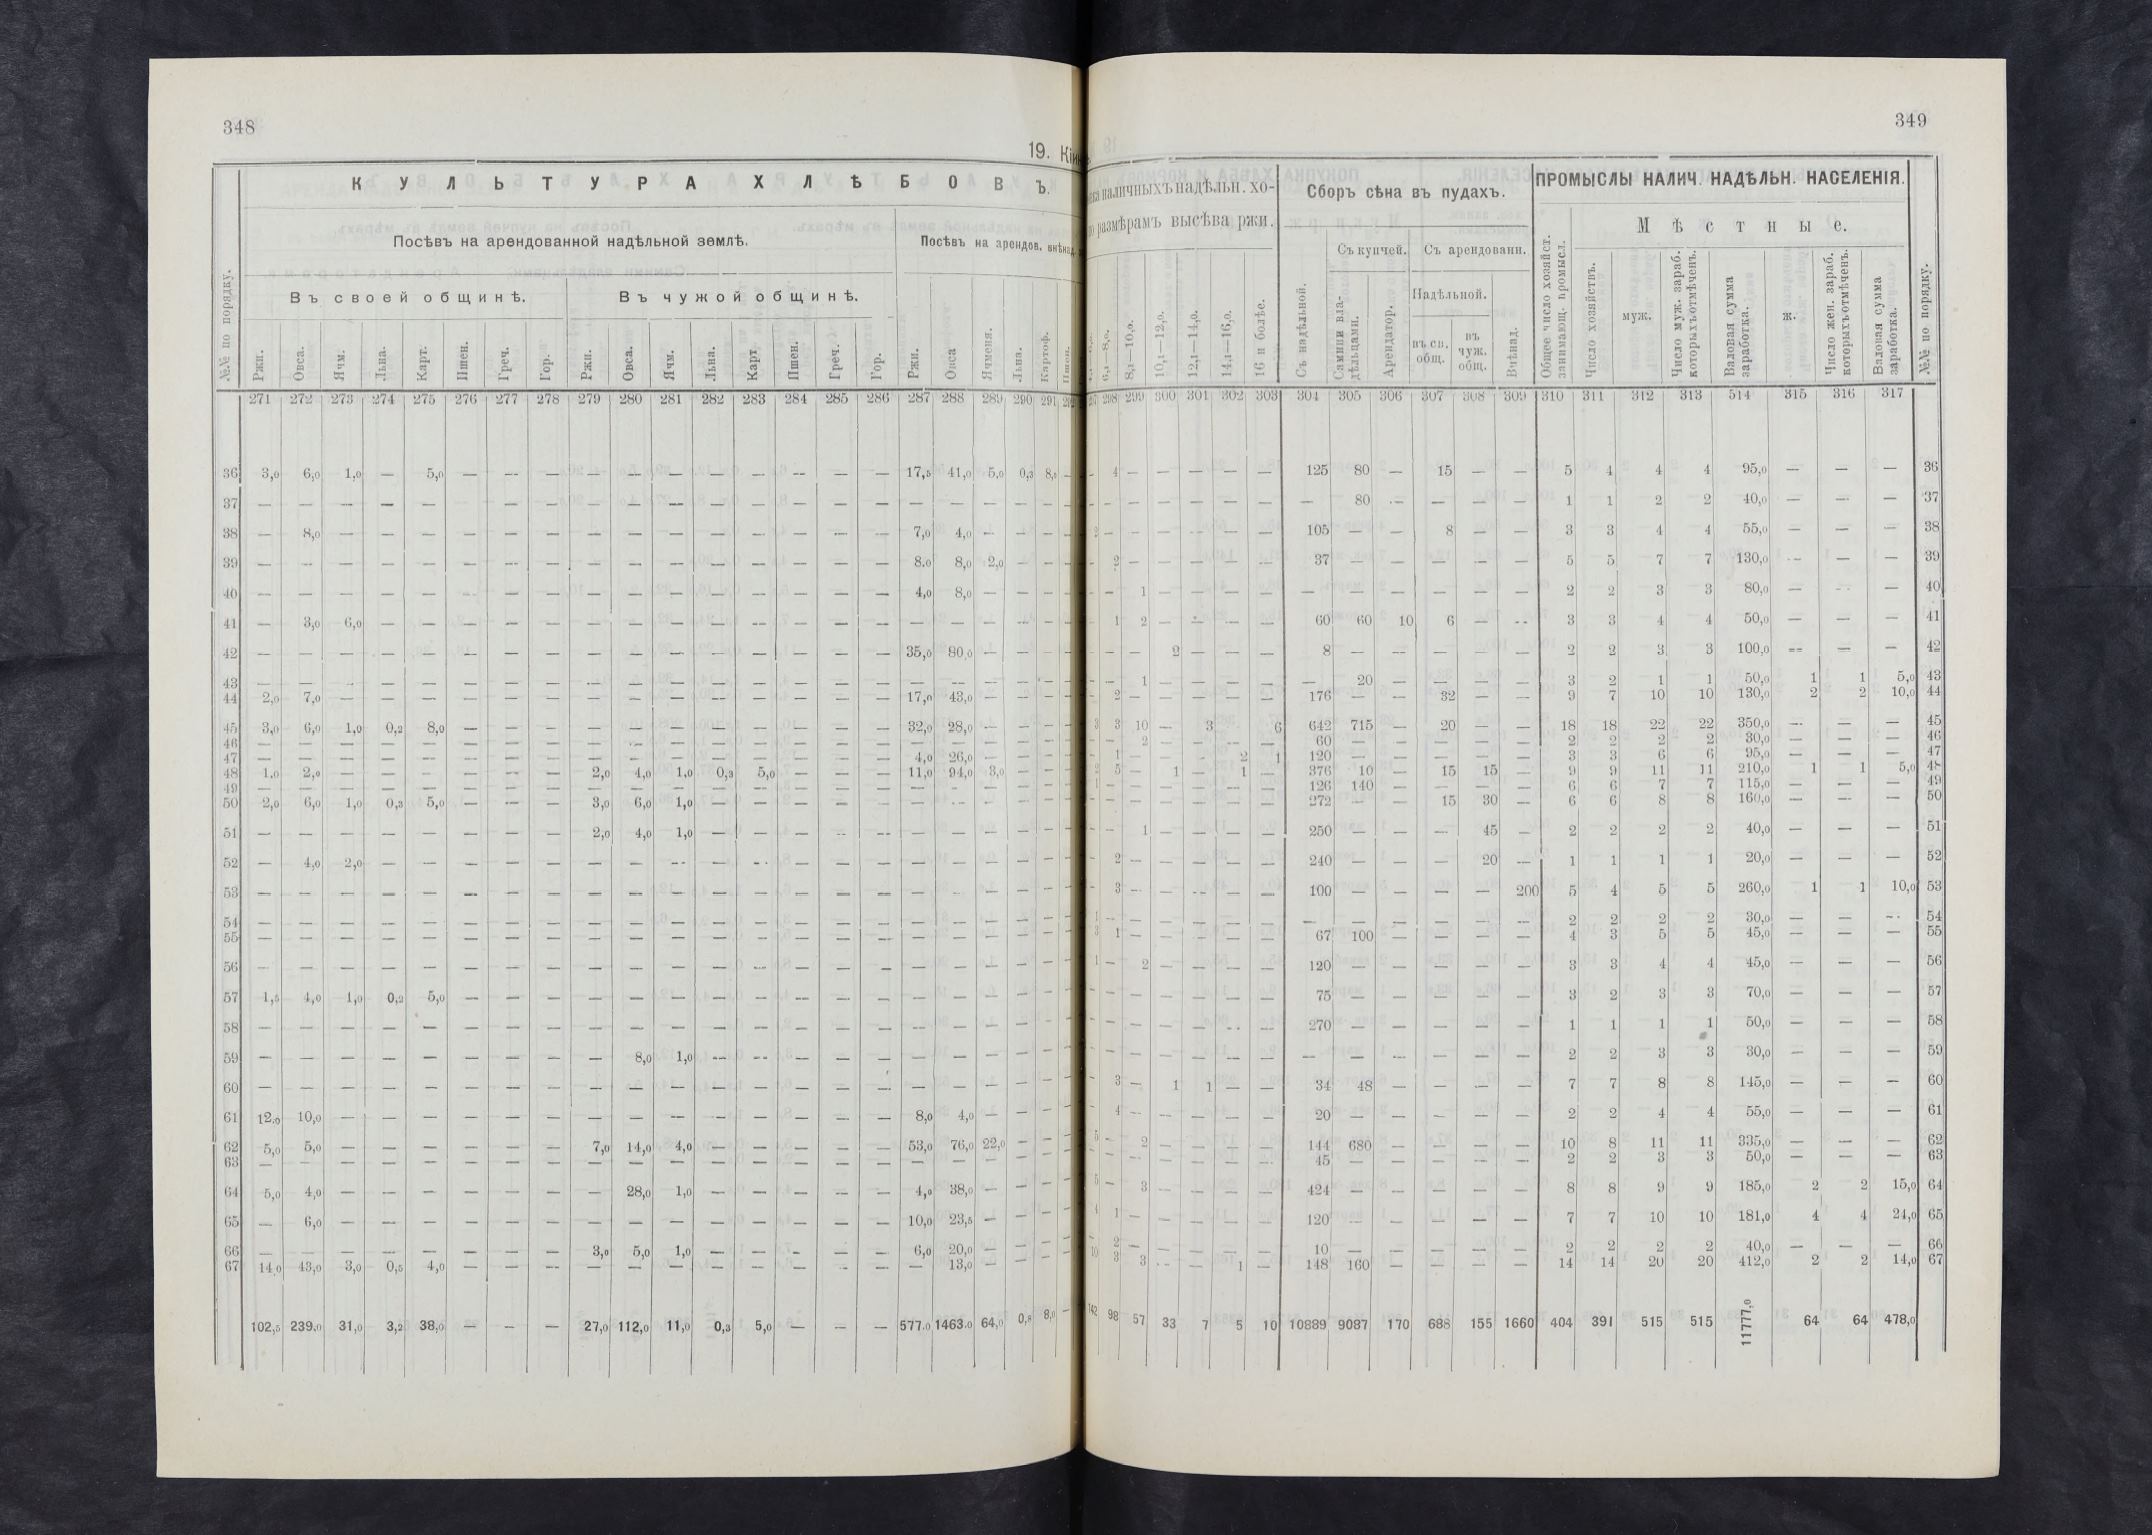 348
19. Кі
К У Л Ь Т У Р А Х Л Ѣ Б О В Ъ.
Посѣвъ на арендованной надѣльной землѣ.
Посѣвъ на арендов. внѣнад.
Въ своей общинѣ.
Въ чужой общинѣ.
№№ по порядку. Ржи. Овса. Ячм. Льна. Карт. Пшен. Греч. Гор. Ржи. Овса. Ячм. Льна. Карт. Пшен. Греч. Гор. Ржи. Овса Ячменя. Льна. Картоф. Пшен.
271 272 273 274 275 276 277 278 279 280 281 282 283 284 285 286 287 288 289 290 291
36 3,0 6,0 1,0 — 5,0 — — — — — — — — — — — 17,5 41,0 5,0 0,3 8,0 —
37 — — — — — — — — — — — — — — — — — — — — — —
38 — 8,0 — — — — — — — — — — — — — — 7,0 4,0 — — — —
39 — — — — — — — — — — — — — — — — 8,0 8,0 2,0 — — —
40 — — — — — — — — — — — — — — — — 4,0 8,0 — — — —
41 — 3,0 6,0 — — — — — — — — — — — — — — — — — — —
42 — — — — — — — — — — — — — — — — 35,0 80,0 — — — —
43 — — — — — — — — — — — — — — — — — — — — — —
44 2,0 7,0 — — — — — — — — — — — — — — 17,0 43,0 — — — —
45 3,0 6,0 1,0 0,2 8,0 — — — — — — — — — — — 32,0 28,0 — — — —
46 — — — — — — — — — — — — — — — — — — — — — —
47 — — — — — — — — — — — — — — — — 4,0 26,0 — — — —
48 1,0 2,0 — — — — — — 2,0 4,0 1,0 0,3 5,0 — — — 11,0 94,0 3,0 — — —
49 — — — — — — — — — — — — — — — — — — — — — —
50 2,0 6,0 1,0 0,3 5,0 — — — 3,0 6,0 1,0 — — — — — — — — — — —
51 — — — — — — — — 2,0 4,0 1,0 — — — — — — — — — — —
52 — 4,0 2,0 — — — — — — — — — — — — — — — — — — —
53 — — — — — — — — — — — — — — — — — — — — — —
54 — — — — — — — — — — — — — — — — — — — — — —
55 — — — — — — — — — — — — — — — — — — — — — —
56 — — — — — — — — — — — — — — — — — — — — — —
57 1,5 4,0 1,0 0,2 5,0 — — — — — — — — — — — — — — — — —
58 — — — — — — — — — — — — — — — — — — — — — —
59 — — — — — — — — — 8,0 1,0 — — — — — — — — — — —
60 — — — — — — — — — — — — — — — — — — — — — —
61 12,0 10,0 — — — — — — — — — — — — — — 8,0 4,0 — — — —
62 5,0 5,0 — — — — — — 7,0 14,0 4,0 — — — — — 53,0 76,0 22,0 — — —
63 — — — — — — — — — — — — — — — — — — — — — —
64 5,0 4,0 — — — — — — — 28,0 1,0 — — — — — 4,0 38,0 — — — —
65 — 6,0 — — — — — — — — — — — — — — 10,0 23,5 — — — —
66 — — — — — — — — 3,0 5,0 1,0 — — — — — 6,0 20,0 — — — —
67 14,0 43,0 3,0 0,5 4,0 — — — — — — — — — — — — 13,0 — — — —
102,5 239,0 31,0 3,2 38,0 — — — 27,0 112,0 11,0 0,3 5,0 — — — 577,0 1463,0 64,0 0,8 8,0 —
349
наличныхъ надѣльн. хо-
размѣрамъ высѣва ржи.
Сборъ сѣна въ пудахъ.
ПРОМЫСЛЫ НАЛИЧ. НАДѢЛЬН. НАСЕЛЕНІЯ.
М ѣ с т н ы е.
Съ купчей. Съ арендованн.
Надѣльной.
8,1—10,0. 10,1—12,0. 12,1—14,0. 14,1—16,0. 16 и болѣе. Съ надѣльной. Самими вла- дѣльцами. Арендатор. въ св. общ. въ чуж. общ. Внѣнад. Общее число хозяйст. занимающ. промысл. Число хозяйствъ. муж. Число муж. зараб. которыхъ отмѣченъ. Валовая сумма заработка. ж. Число жен. зараб. которыхъ отмѣченъ. Валовая сумма заработка. №№ по порядку.
298 299 300 301 302 303 304 305 306 307 308 309 310 311 312 313 514 315 316 317
4 — — — — — 125 80 — 15 — — 5 4 4 4 95,0 — — — 36
— — — — — — — 80 — — — — 1 1 2 2 40,0 — — — 37
2 — — — — — — 105 — — 8 — — 3 3 4 4 55,0 — — — 38
2 — — — — — 37 — — — — — 5 5 7 7 130,0 — — — 39
— 1 — — — — — — — — — — 2 2 3 3 80,0 — — — 40
1 2 — — — — 60 60 10 6 — — 3 3 4 4 50,0 — — — 41
— — 2 — — — 8 — — — — — 2 2 3 3 100,0 — — — 42
— 1 — — — — — 20 — — — — 3 2 1 1 50,0 1 1 5,0 43
2 — — — — — 176 — — 32 — — 9 7 10 10 130,0 2 2 10,0 44
3 3 10 — 3 6 642 715 — 20 — — 18 18 22 22 350,0 — — — 45
— 2 — — — — 60 — — — — — 2 2 2 2 30,0 — — — 46
1 — — — 2 1 120 — — — — — 3 3 6 6 95,0 — — — 47
2 5 — 1 — 1 — 376 10 — 15 15 — 9 9 11 11 210,0 1 1 5,0 48
1 — — — — — — 126 140 — — — — 6 6 7 7 115,0 — — — 49
— — — — — — 272 — — 15 30 — 6 6 8 8 160,0 — — — 50
— 1 — — — — 250 — — — 45 — 2 2 2 2 40,0 — — — 51
2 — — — — — 240 — — — 20 — 1 1 1 1 20,0 — — — 52
3 — — — — — 100 — — — — 200 5 4 5 5 260,0 1 1 10,0 53
1 — — — — — — — — — — — — 2 2 2 2 30,0 — — — 54
3 1 — — — — — 67 100 — — — — 4 3 5 5 45,0 — — — 55
1 — 2 — — — — 120 — — — — — 3 3 4 4 45,0 — — — 56
— — — — — — 75 — — — — — 3 2 3 3 70,0 — — — 57
— — — — — — 270 — — — — — 1 1 1 1 50,0 — — — 58
— — — — — — — — — — — — 2 2 3 3 30,0 — — — 59
3 — 1 1 — — 34 48 — — — — 7 7 8 8 145,0 — — — 60
4 — — — — — 20 — — — — — 2 2 4 4 55,0 — — — 61
5 — 2 — — — — 144 680 — — — — 10 8 11 11 335,0 — — — 62
— — — — — — 45 — — — — — 2 2 3 3 50,0 — — — 63
5 — 3 — — — — 424 — — — — — 8 8 9 9 185,0 2 2 15,0 64
4 1 — — — — — 120 — — — — — 7 7 10 10 181,0 4 4 24,0 65
2 — — — — — 10 — — — — — 2 2 2 2 40,0 — — — 66
10 3 3 — — 1 — 148 160 — — — — 14 14 20 20 412,0 2 2 14,0 67
142 98 57 33 7 5 10 10889 9087 170 688 155 1660 404 391 515 515 11777,0 64 64 478,0